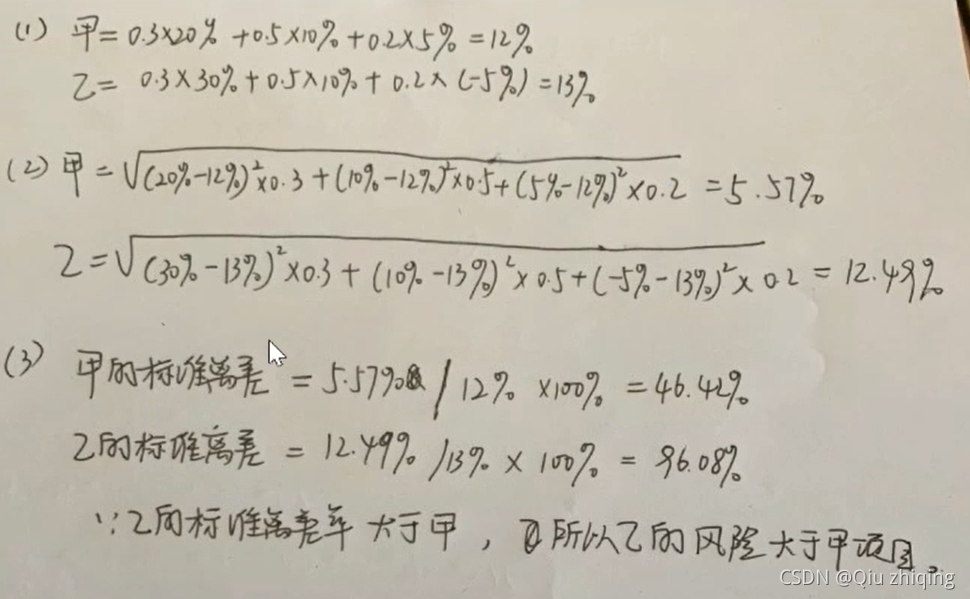 (1) 甲 = 0.3×20% + 0.5×10% + 0.2×5% = 12%
乙 = 0.3×30% + 0.5×10% + 0.2×(-5%) = 13%
(2) 甲 = √(20%-12%)²×0.3 + (10%-12%)²×0.5 + (5%-12%)²×0.2 = 5.57%
乙 = √(30%-13%)²×0.3 + (10%-13%)²×0.5 + (-5%-13%)²×0.2 = 12.49%
(3) 甲的标准离差 = 5.57% / 12% ×100% = 46.42%
乙的标准离差 = 12.49% /13% × 100% = 96.08%
∵乙的标准离差率大于甲, 所以乙的风险大于甲项目。
CSDN @Qiu zhiqing